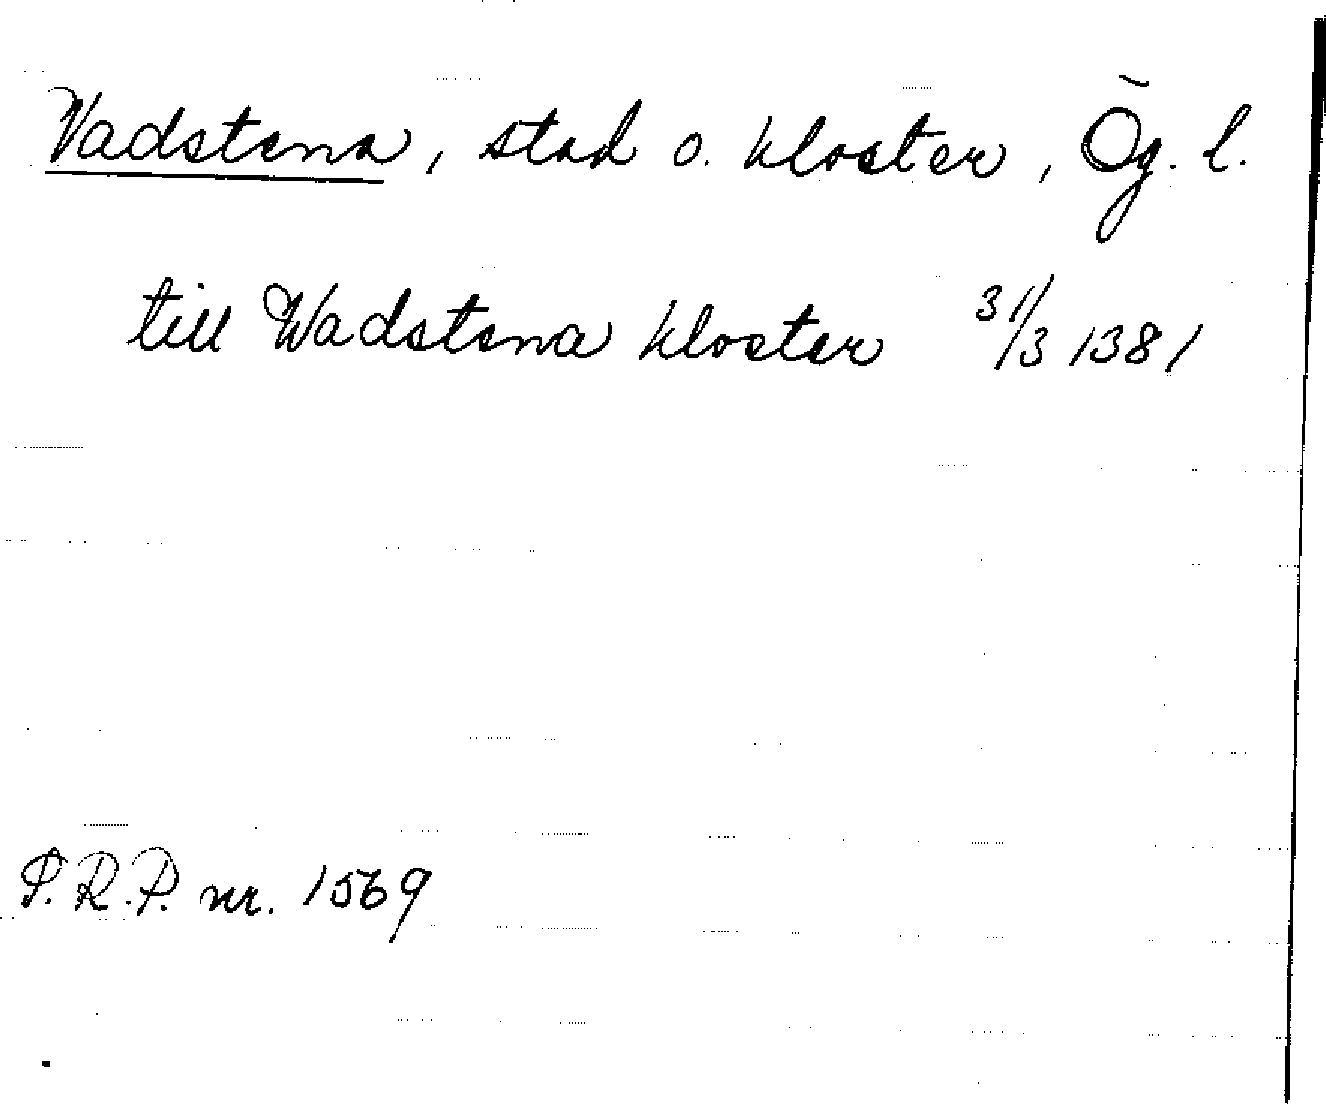 Vadstena, stad o. kloster, Ög. l.
till Wadstena kloster 31/3 1381
P.R.P. nr. 1569